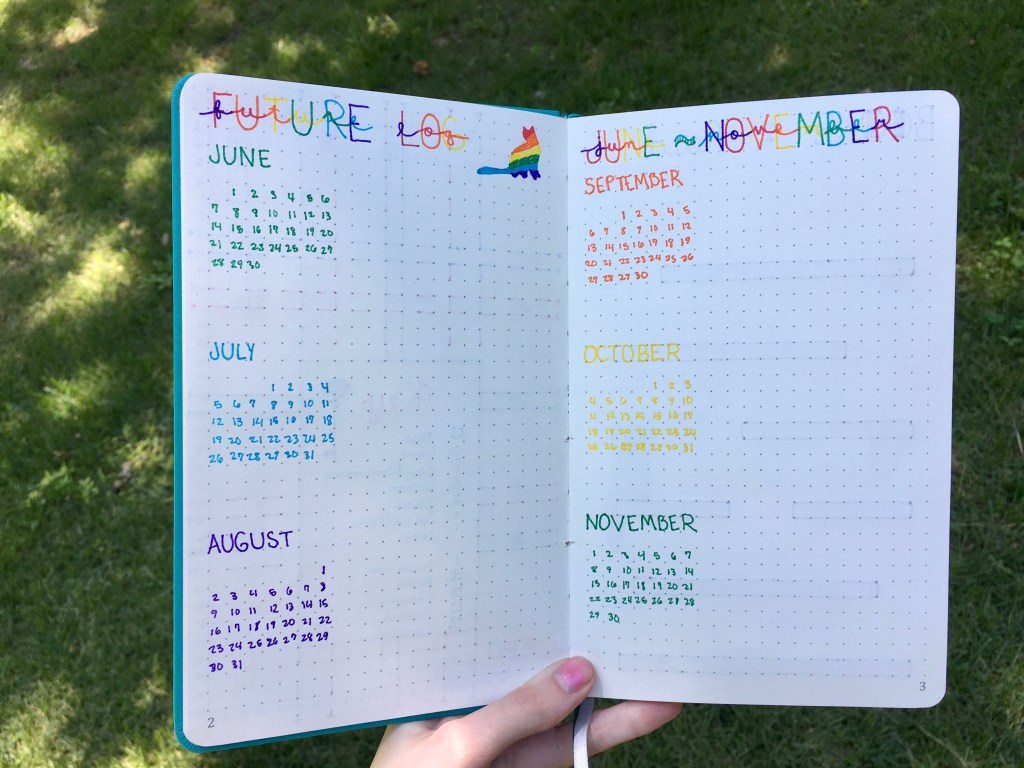 FUTURE LOG
future log
JUNE
1 2 3 4 5 6
7 8 9 10 11 12 13
14 15 16 17 18 19 20
21 22 23 24 25 26 27
28 29 30
JULY
1 2 3 4
5 6 7 8 9 10 11
12 13 14 15 16 17 18
19 20 21 22 23 24 25
26 27 28 29 30 31
AUGUST
1
2 3 4 5 6 7 8
9 10 11 12 13 14 15
16 17 18 19 20 21 22
23 24 25 26 27 28 29
30 31
2
JUNE ~ NOVEMBER
june ~ november
SEPTEMBER
1 2 3 4 5
6 7 8 9 10 11 12
13 14 15 16 17 18 19
20 21 22 23 24 25 26
27 28 29 30
OCTOBER
1 2 3
4 5 6 7 8 9 10
11 12 13 14 15 16 17
18 19 20 21 22 23 24
25 26 27 28 29 30 31
NOVEMBER
1 2 3 4 5 6 7
8 9 10 11 12 13 14
15 16 17 18 19 20 21
22 23 24 25 26 27 28
29 30
3